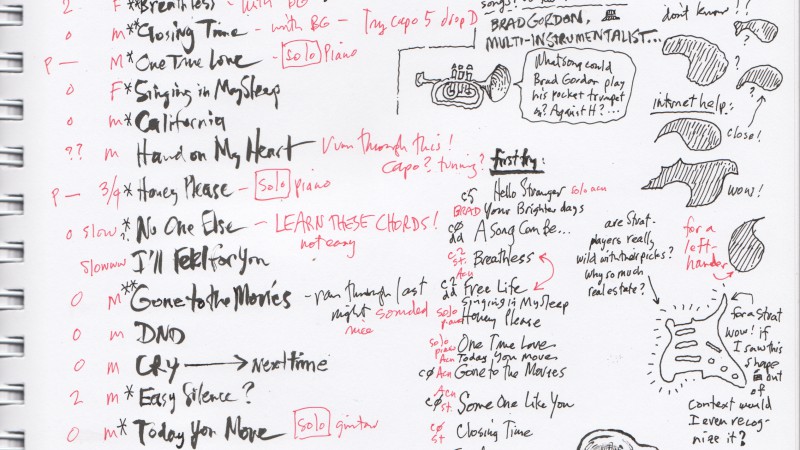 2 F **Breathless - with BG
0 m**Closing Time - with BG - Try capo 5 drop D
P— M*One True Love - Solo piano
0 F*Singing in My Sleep
0 m*California
?? m Hand on My Heart run through this!
capo? tuning?
P— 3/4*Honey Please - Solo piano
0 slow *No One Else - LEARN THESE CHORDS!
not easy
slowww I'll Feel for You
0 M**Gone to the Movies - ran through last
night sounded
nice
0 m DND
0 m CRY → Next time
2 m*Easy Silence?
0 m**Today You Move Solo guitar
BRAD GORDON,
MULTI-INSTRUMENTALIST...
What song could
Brad Gordon play
his pocket trumpet
on? Against H?...
first try:
c5 Hello Stranger solo acn
BRAD Your Brighter days
cØ dd A Song Can Be...
c2 st. Breathless
Acn
c2 dd Free Life
Singing in My Sleep
solo piano Honey Please
solo piano One True Love
Acn Today You Move
cØ Acn Gone to the Movies
Acn
cØ st Some One Like You
cØ st Closing Time
don't know!!
?
?
?
internet help:
close!
wow!
are Strat-
players really
wild with their picks?
why so much
real estate?
for a
left-
hander
for a Strat
wow! if
I saw this
shape out
of
context would
I even recog-
nize it?